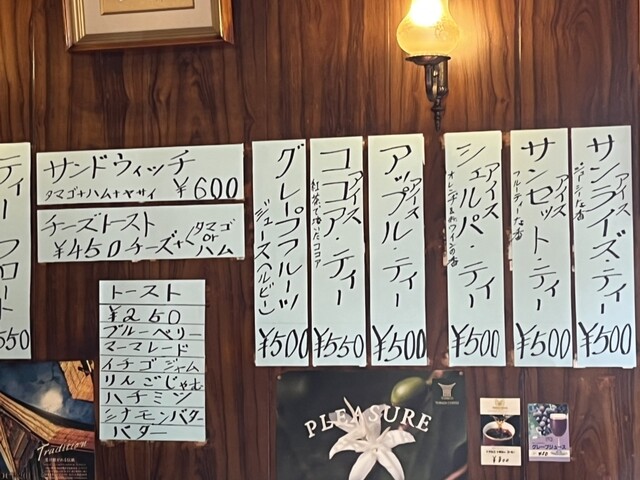 サンドウィッチ
タマゴ+ハム+ヤサイ ¥600
チーズトースト
¥450 チーズ+(タマゴ or ハム
トースト
¥250
ブルーベリ
マーマレード
イチゴジャム
りんごじゃむ
ハチミツ
シナモンバター
バター
サンライズ・ティー
アイス
¥500
サンセット・ティー
アイス
フルーティーな香
¥500
シェルパ・ティー
アイス
¥500
アップル・ティー
アイス
¥500
ココア・ティー
アイス
紅茶で溶いたココア
¥550
グレープフルーツ
ジュース(ルビー)
¥500
ティーフロート
550
Tradition
PLEASURE
グレープジュース